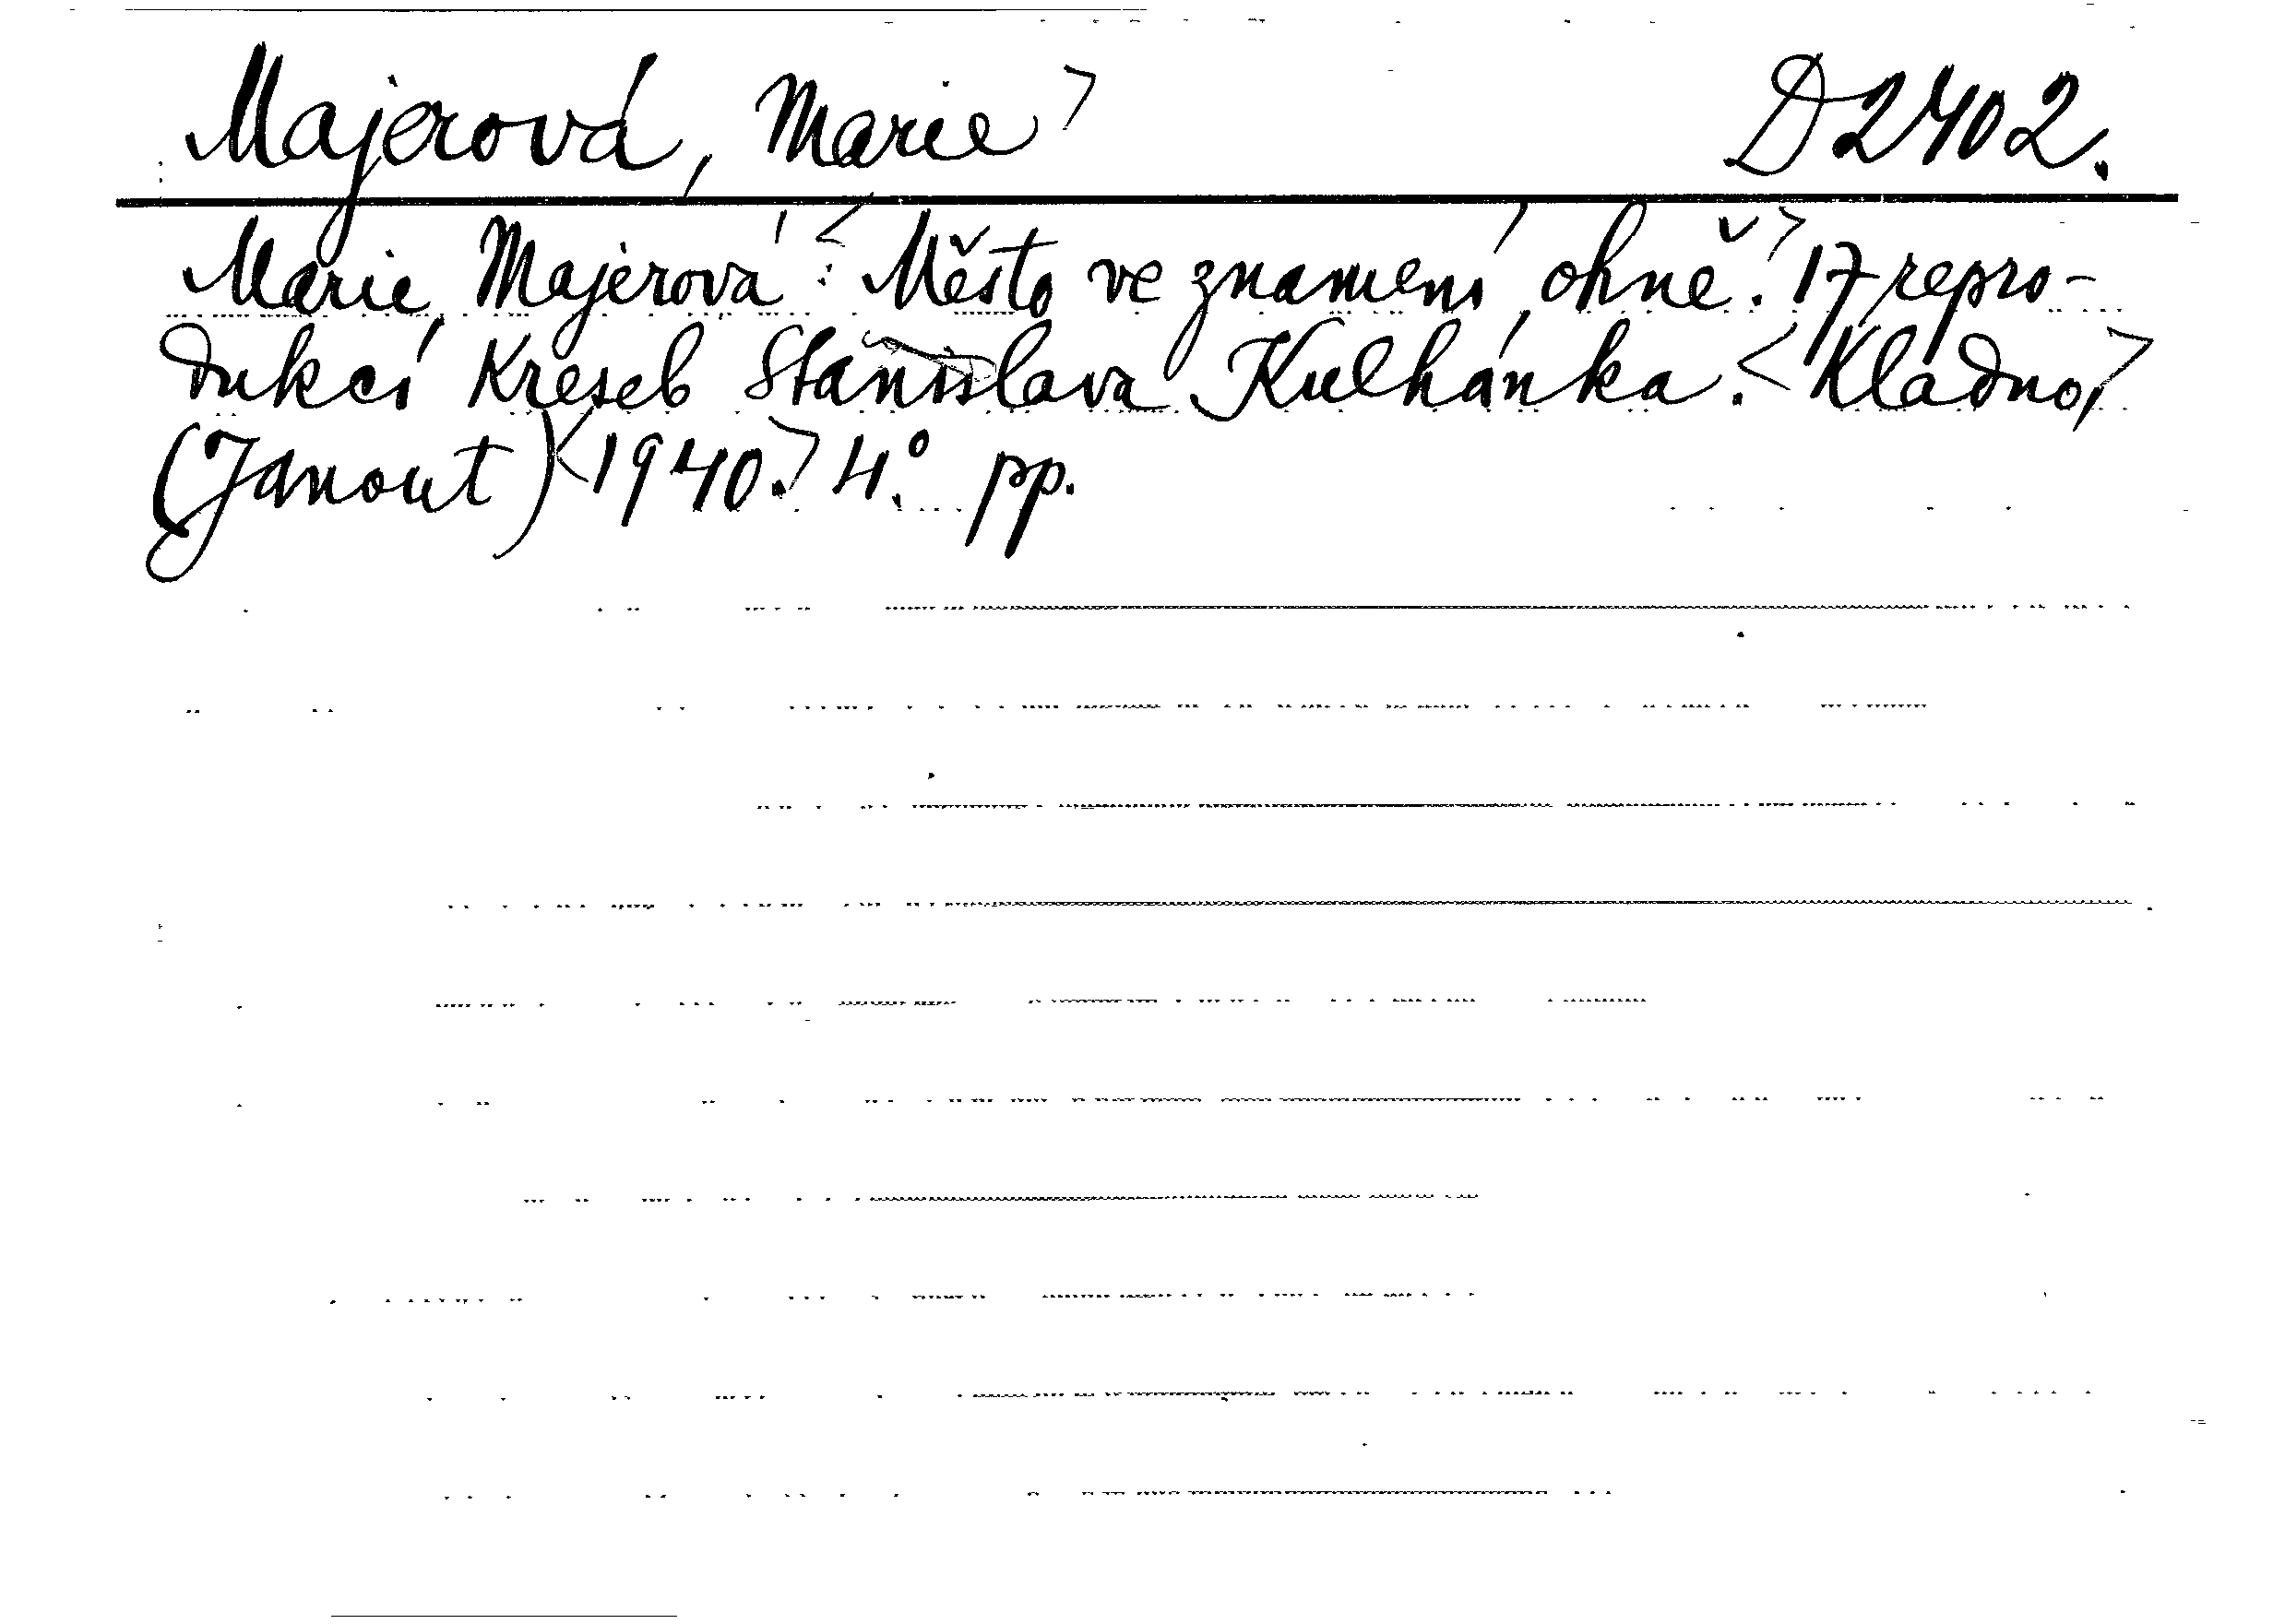 Majerová, Marie> D2402.
Marie Majerová:< Město ve znamení ohně.> 17 repro-
dukcí kreseb Stanislava Kulhánka.< Kladno,>
(Janout)<1940.> 4.° pp.